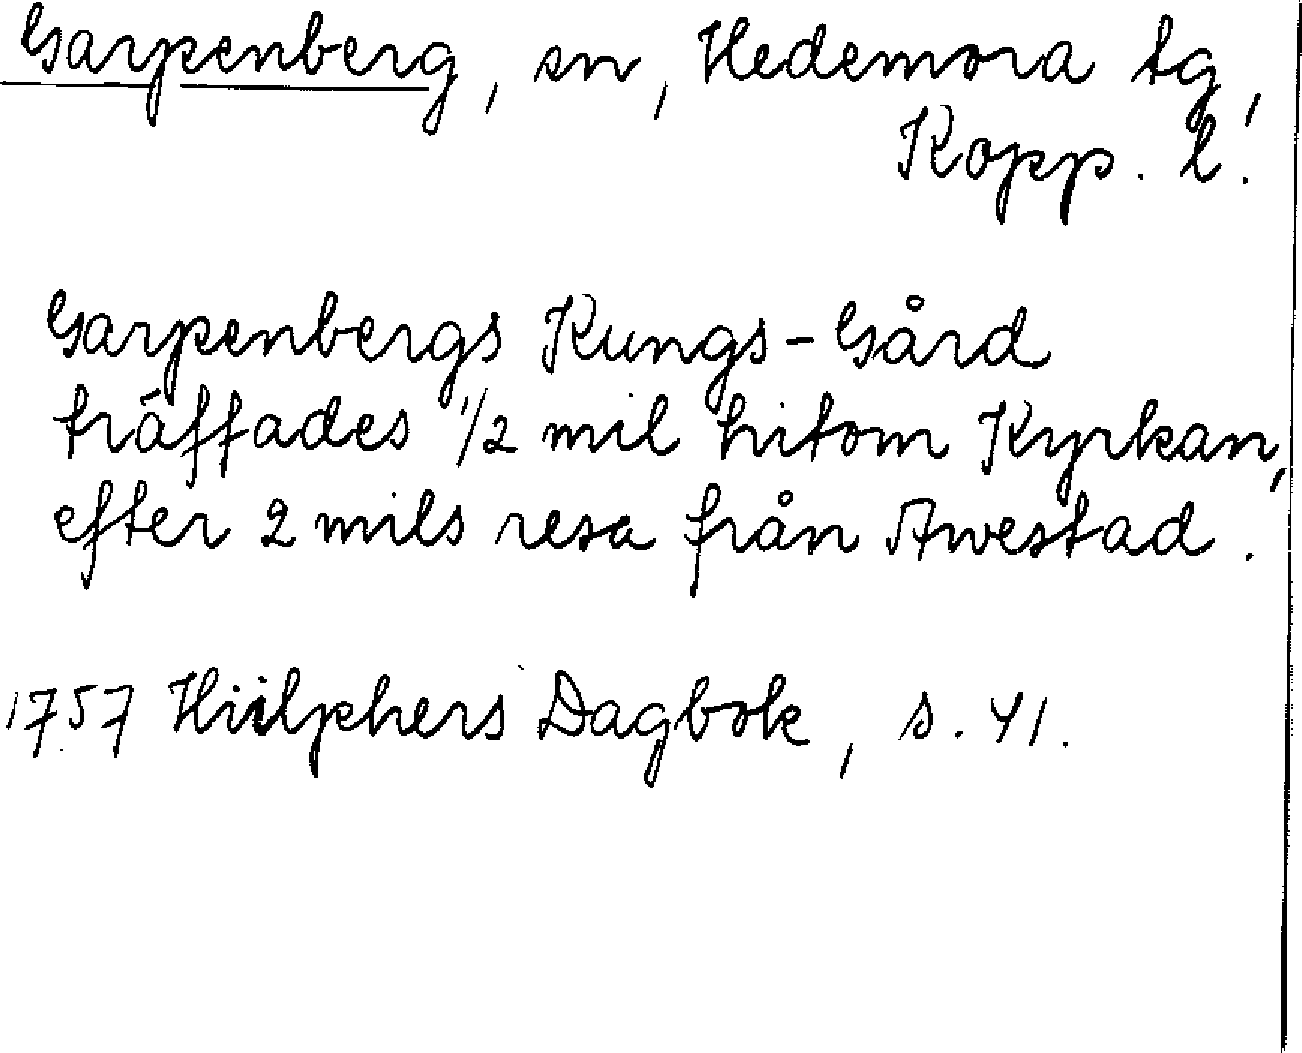 Garpenberg, sn, Hedemora tg,
Kopp. l.
Garpenbergs Kungs-Gård
träffades 1/2 mil hitom Kyrkan,
efter 2 mils resa från Awestad.
1757 Hülphers Dagbok, s. 41.